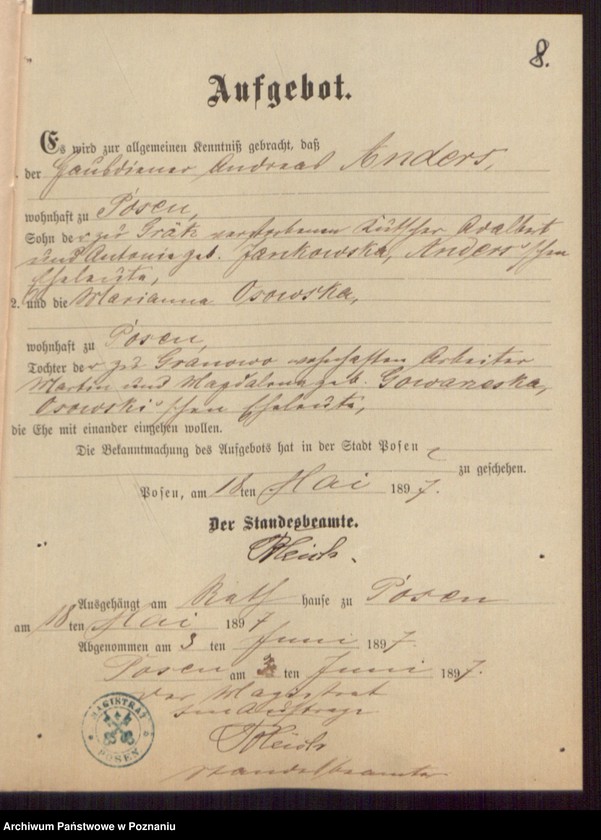 8.
Aufgebot.
Es wird zur allgemeinen Kenntniß gebracht, daß
1. der Hausdiener Andreas Anders,
wohnhaft zu Posen,
Sohn der zu Grätz verstorbenen Kutscher Adalbert
und Antonie geb. Jankowska, Anders'schen
Eheleute,
2. und die Marianna Osowska,
wohnhaft zu Posen,
Tochter der zu Granowo wohnhaften Arbeiter
Martin und Magdalena geb.
Osowski'schen Eheleute,
die Ehe mit einander eingehen wollen.
Die Bekanntmachung des Aufgebots hat in der Stadt Posen
zu geschehen.
Posen, am 18ten Mai 1897.
Der Standesbeamte.
Ausgehängt am Rathhause zu Posen
am 18ten Mai 1897
Abgenommen am 3ten Juni 1897.
Posen am 3ten Juni 1897.
Der Magistrat
im Auftrage
Standesbeamte
MAGISTRAT POSEN
Archiwum Państwowe w Poznaniu